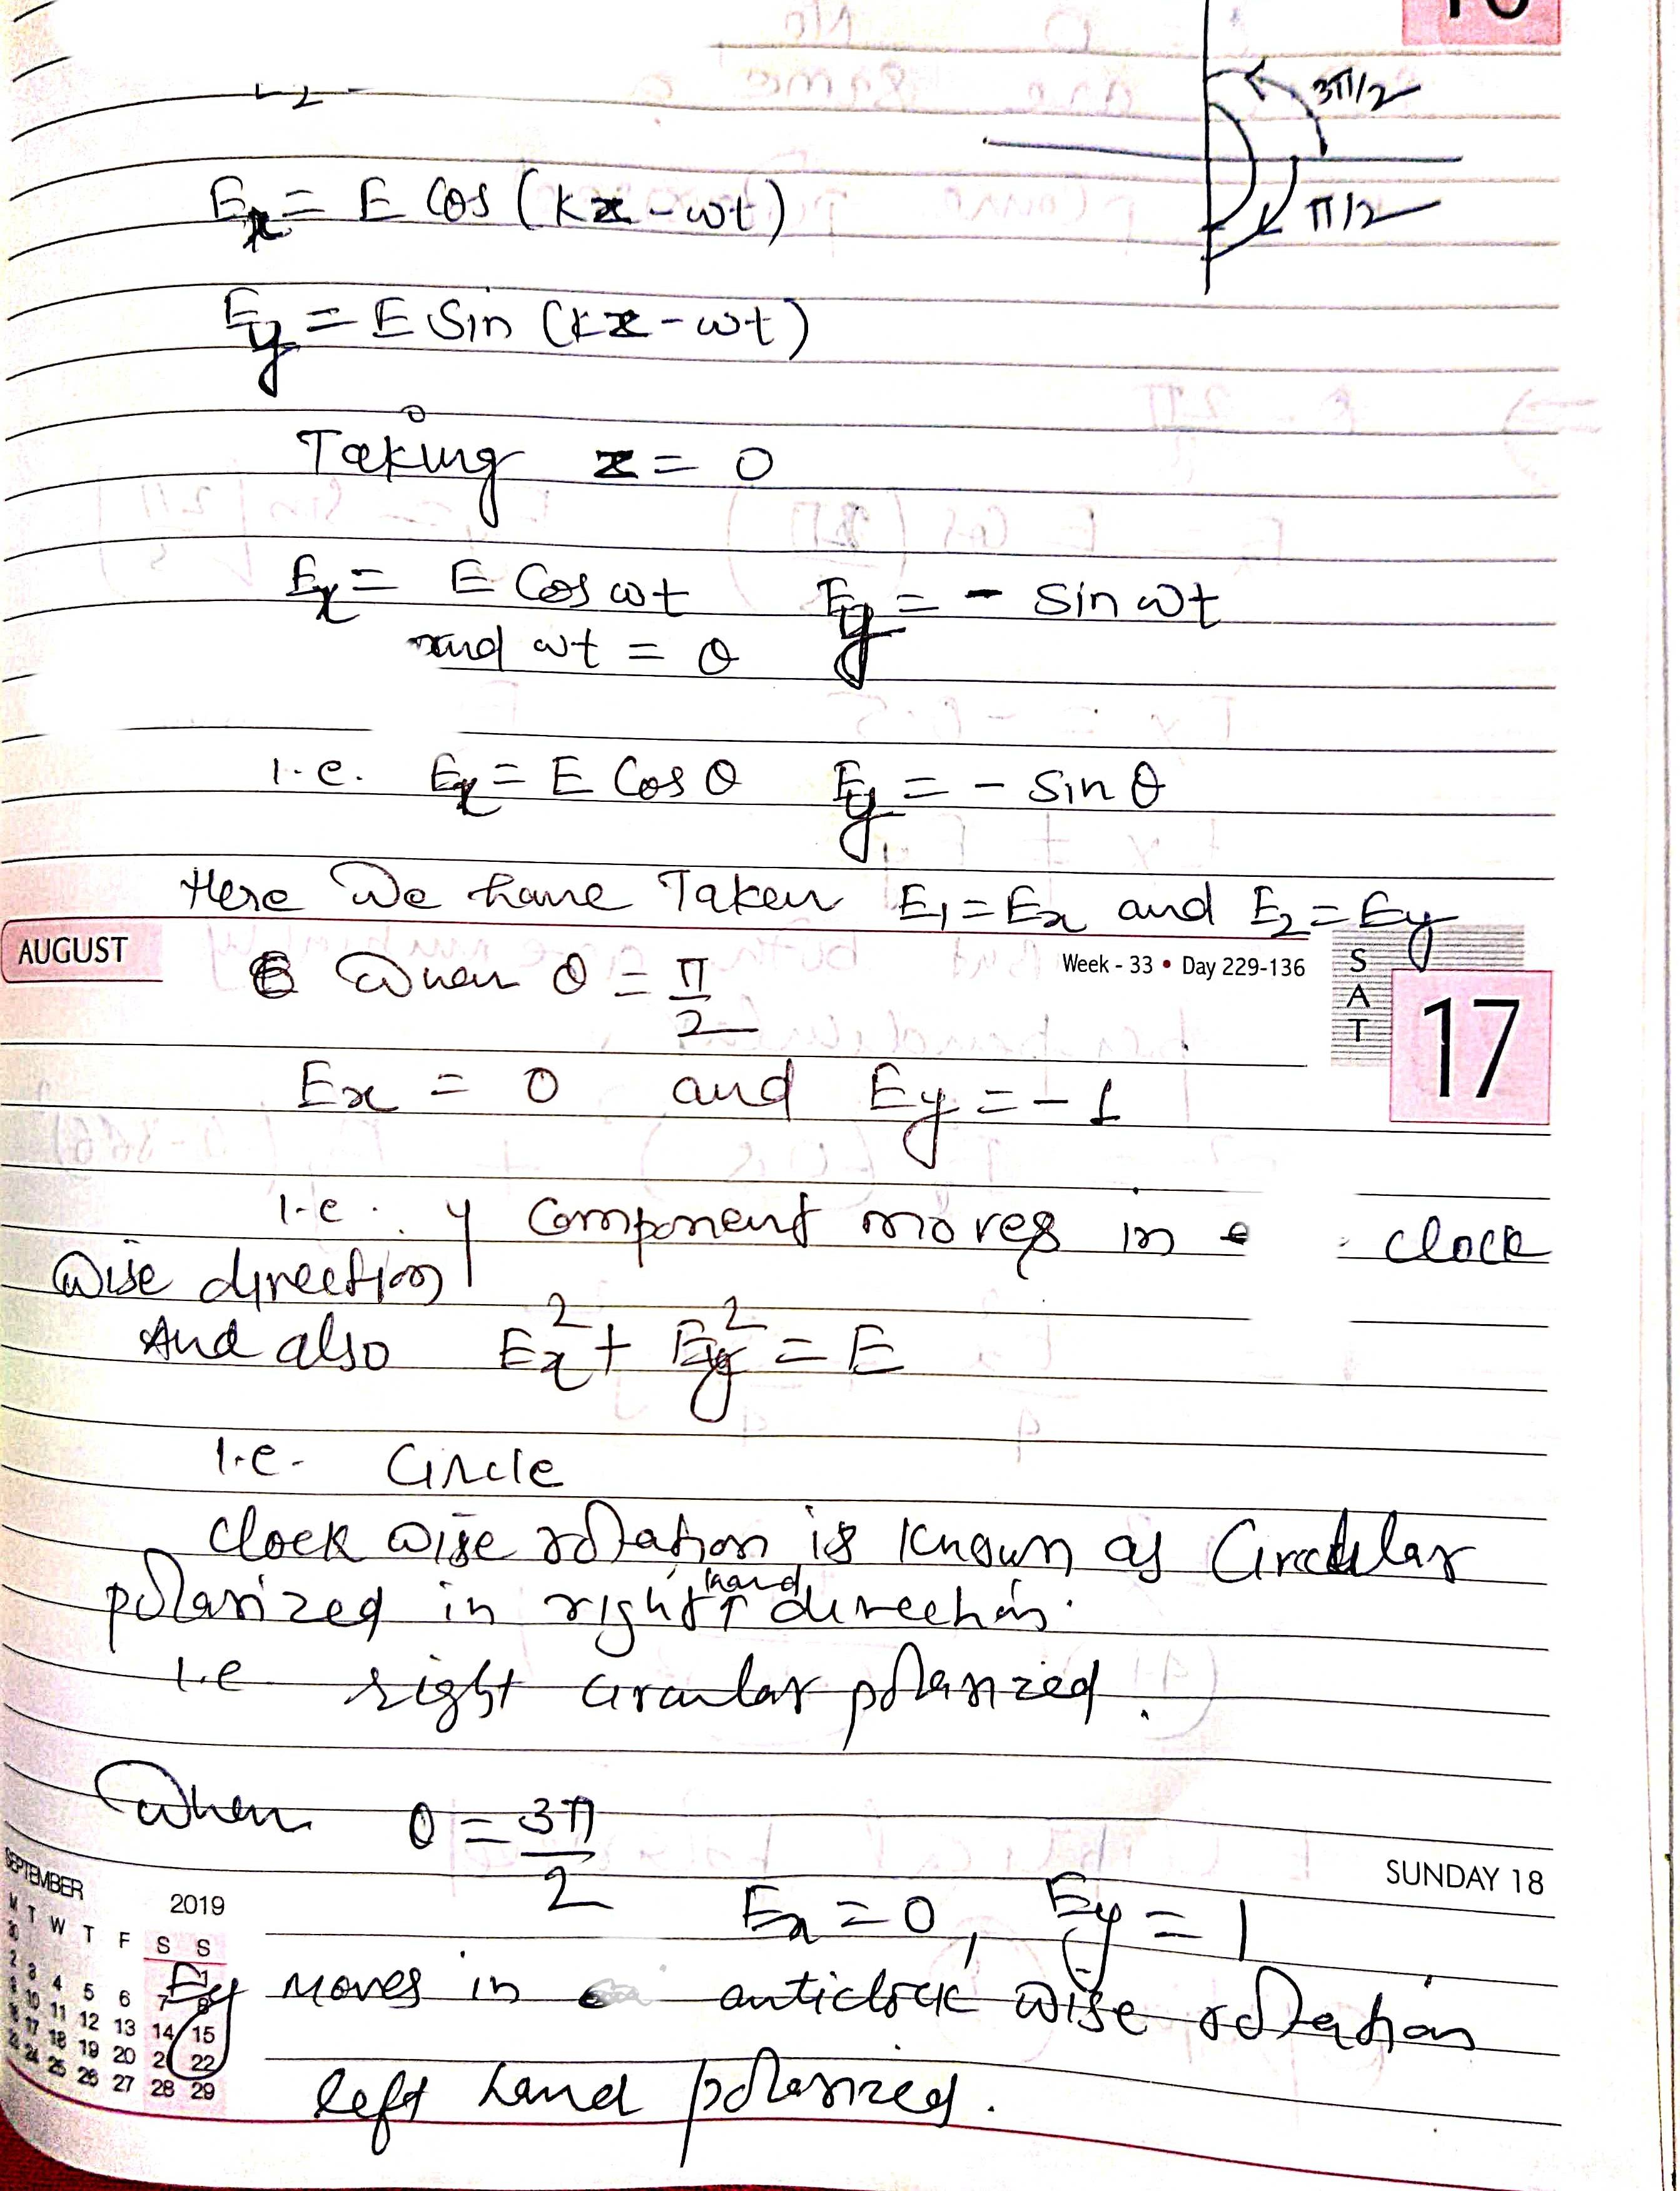 3π/2
π/2
Ex = E Cos (kz - ωt)
Ey = E Sin (kz - ωt)
Taking z = 0
Ex = E Cos ωt Ey = - Sin ωt
and ωt = θ
I.e. Ex = E Cos θ Ey = - Sin θ
Here We have Taken E1 = Ex and E2 = Ey
AUGUST
Week - 33 • Day 229-136
SAT
17
When θ = π/2
Ex = 0 and Ey = - 1
I.e. y Component moves in clock
wise direction
And also Ex² + Ey² = E
I.e. Circle
Clock wise rotation is Known as Circular
polarized in right hand direction.
I.e right circular polarized.
When θ = 3π/2
SUNDAY 18
Ex = 0, Ey = 1
Ey moves in anticlock wise rotation
left hand polarized.
SEPTEMBER 2019
M T W T F S S
30 1
2 3 4 5 6 7 8
9 10 11 12 13 14 15
16 17 18 19 20 21 22
23 24 25 26 27 28 29